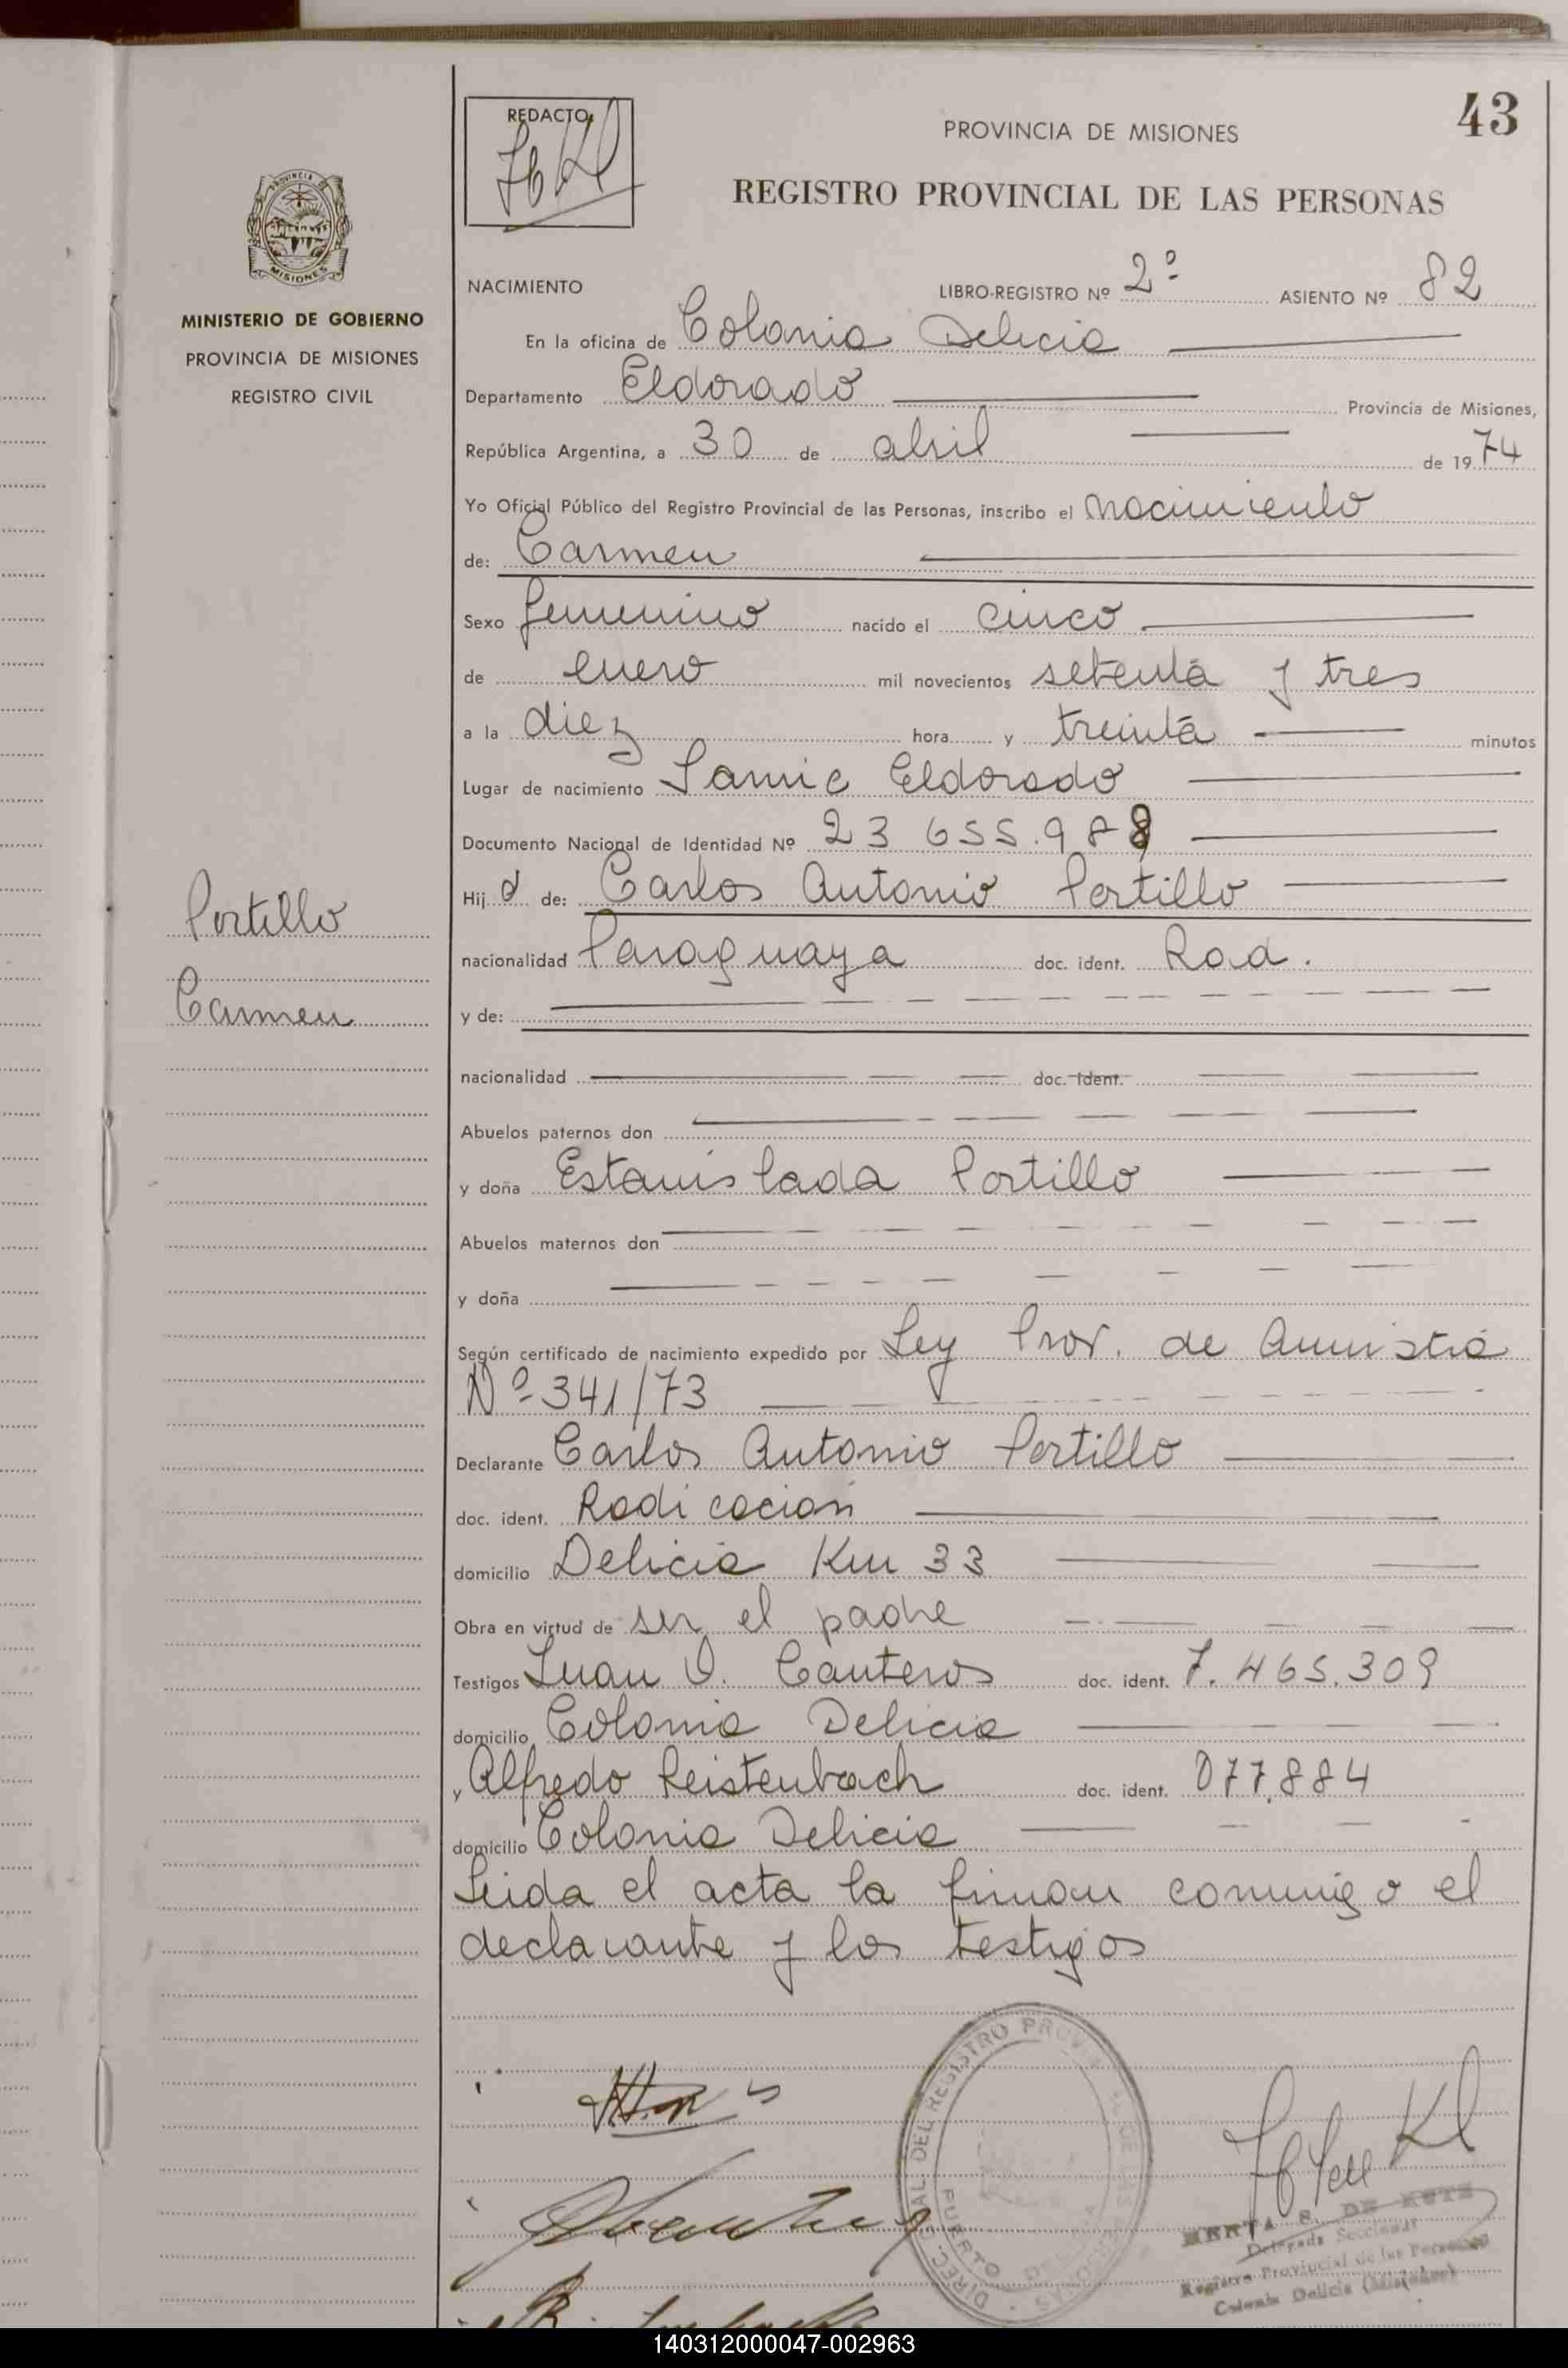 43
REDACTO
PROVINCIA DE MISIONES
REGISTRO PROVINCIAL DE LAS PERSONAS
PROVINCIA DE
MISIONES
MINISTERIO DE GOBIERNO
PROVINCIA DE MISIONES
REGISTRO CIVIL
NACIMIENTO LIBRO-REGISTRO Nº 2º ASIENTO Nº 82
En la oficina de Colonia Delicia
Departamento Eldorado Provincia de Misiones,
República Argentina, a 30 de abril de 1974
Yo Oficial Público del Registro Provincial de las Personas, inscribo el nacimiento
de: Carmen
Sexo femenino nacido el cinco
de enero mil novecientos setenta y tres
a la diez hora y treinta minutos
Lugar de nacimiento Samic Eldorado
Documento Nacional de Identidad Nº 23 655.988
Hija de: Carlos Antonio Portillo
Portillo
Carmen
nacionalidad Paraguaya doc. ident. Rad.
y de:
nacionalidad doc. ident.
Abuelos paternos don
y doña Estanislada Portillo
Abuelos maternos don
y doña
Según certificado de nacimiento expedido por Ley Prov. de Amnistia
Nº 341/73
Declarante Carlos Antonio Portillo
doc. ident. Radicacion
domicilio Delicia Km 33
Obra en virtud de ser el padre
Testigos Juan O. Canteros doc. ident. 7.465.309
domicilio Colonia Delicia
y Alfredo Reistenbach doc. ident. 077.884
domicilio Colonia Delicia
Leida el acta la firman conmigo el
declarante y los testigos
DEL REGISTRO
PUERTO
Delegada Seccional
Registro Provincial de las Personas
Colonia Delicia (Misiones)
140312000047-002963